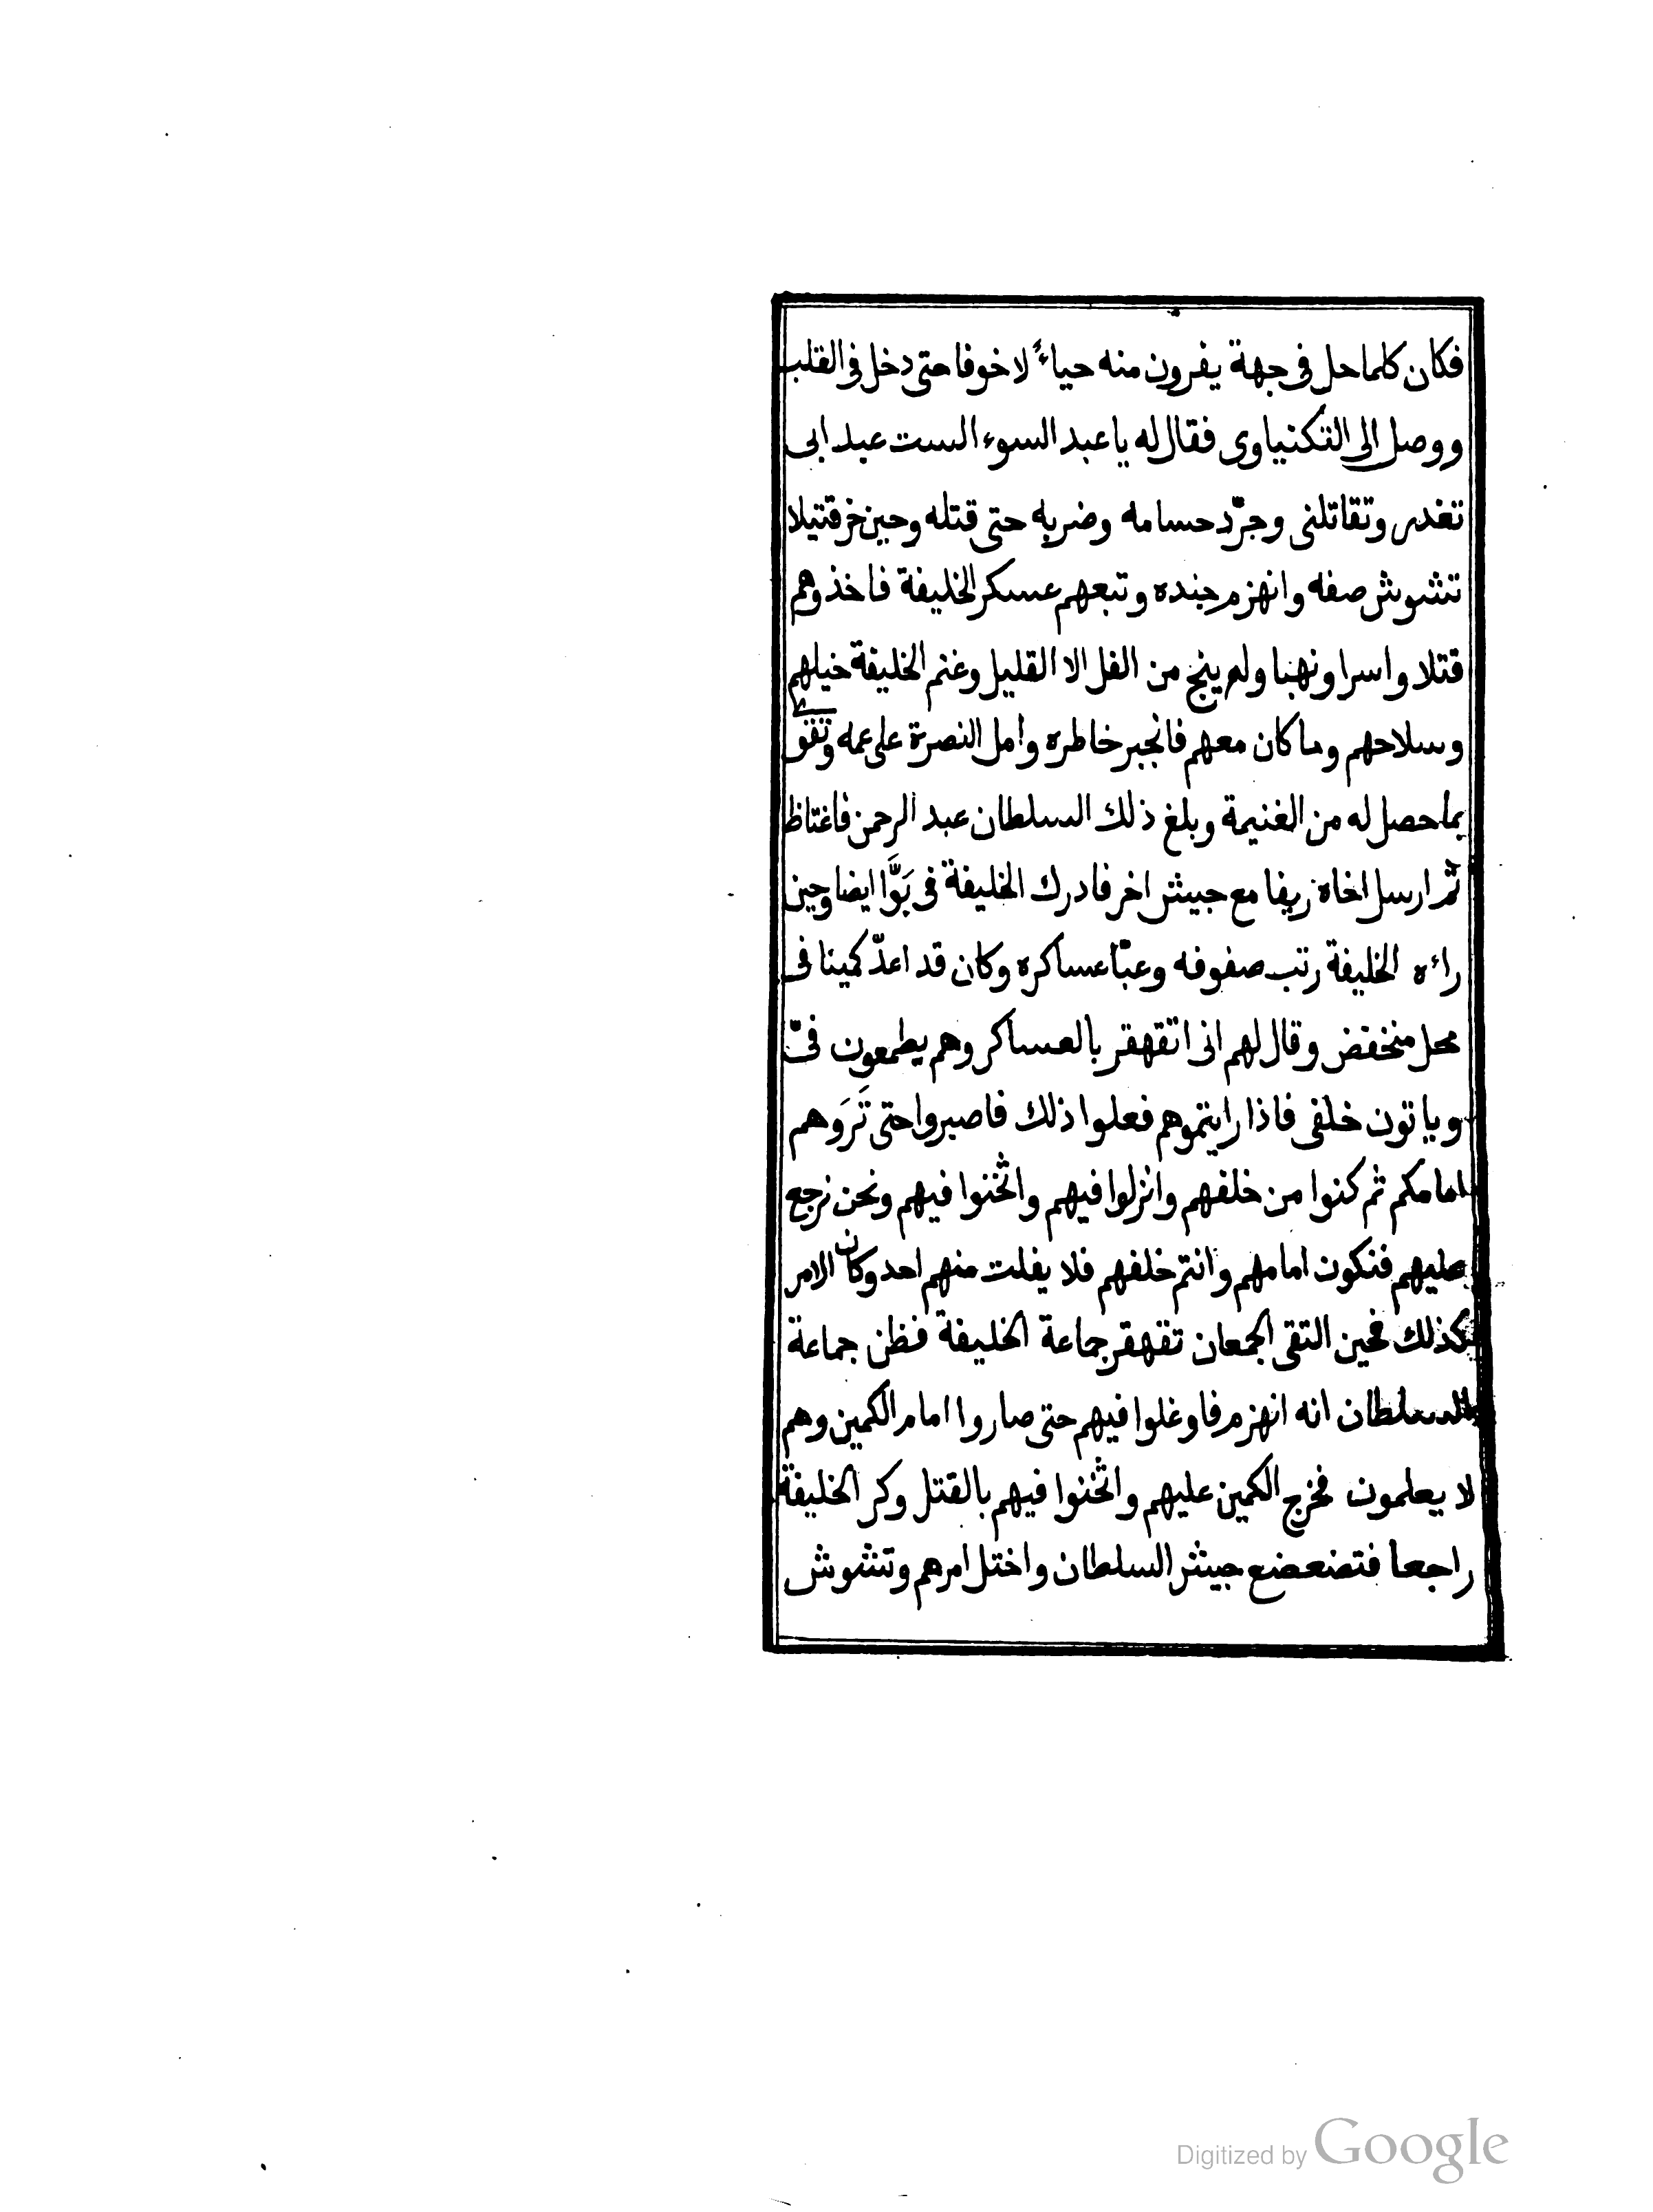 فكان كلما حل فى جهة يفرون منه حياءً لا خوفا حتى دخل فى القلب
ووصل الى التكنياوى فقال له يا عبد السوء الست عبد ابى
تغدر وتقاتلنى وجرّد حسامه وضربه حتى قتله وحين خر قتيلا
تشوش صفه وانهزم جنده وتبعهم عسكر الخليفة فاخذوهم
قتلا واسرا ونهبا ولم ينج من الفل الا القليل وغنم الخليفة خيلهم
وسلاحهم وما كان معهم فانجبر خاطره وامل النصرة على عمه وتقوى
بما حصل له من الغنيمة وبلغ ذلك السلطان عبد الرحمن فاغتاظ
ثم ارسل اخاه ريفا مع جيش اخر فادرك الخليفة فى بَوَّا ايضا وحين
راءه الخليفة رتب صفوفه وعبّا عساكره وكان قد اعدّ كمينا فى
محل منخفض وقال لهم انى اتقهقر بالعساكر وهم يطمعون فىّ
وياتون خلفى فاذا رايتموهم فعلوا ذلك فاصبروا حتى تَرَوهم
امامكم ثم كنوا من خلفهم وانزلوا فيهم واثخنوا فيهم ونحن نرجع
عليهم فنكون امامهم وانتم خلفهم فلا يفلت منهم احد وكان الامر
كذلك فحين التقى الجمعان تقهقر جماعة الخليفة فظن جماعة
السلطان انه انهزم فاوغلوا فيهم حتى صاروا امام الكمين وهم
لا يعلمون فخرج الكمين عليهم واثخنوا فيهم بالقتل وكر الخليفة
راجعا فتضعضع جيش السلطان واختل امرهم وتشوش
Digitized by Google